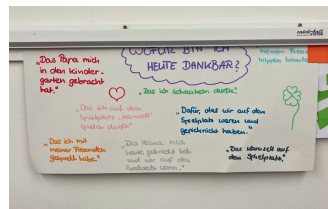 WOFÜR BIN ICH
HEUTE DANKBAR?
„Das Papa mich
in den Kinder-
garten gebracht
hat."
meinen
wippen
„Das ich schaukeln durfte."
„Das ich auf dem
Spielplatz „Karussell"
spielen durfte"
„Dafür, das wir auf dem
Spielplatz waren und
gepicknickt haben."
„Das ich mit
meiner Freundin
gespielt habe."
„Das Mama mich
heute gebracht hat
und wir auf dem
Spielplatz waren."
„Das Karussell auf
dem Spielplatz."